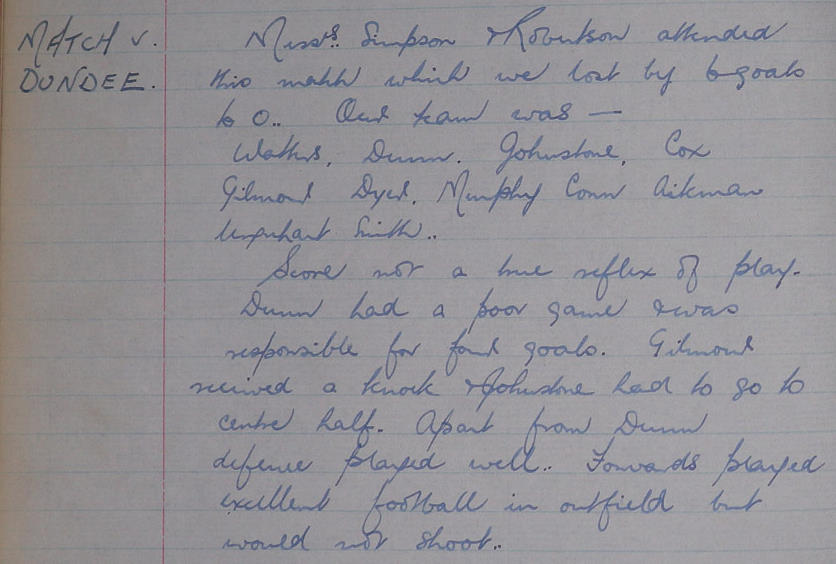 MATCH v.
DUNDEE.
Messrs. Simpson & Robertson attended
this match which we lost by 6 goals
to 0.. Our team was —
Watters, Dunn. Johnstone, Cox
Gilmour Dyer, Murphy Conn Aikman
Urquhart Smith..
Score not a true reflex of play.
Dunn had a poor game & was
responsible for four goals. Gilmour
received a knock & Johnstone had to go to
centre half. Apart from Dunn
defence played well.. Forwards played
excellent football in outfield but
would not shoot..